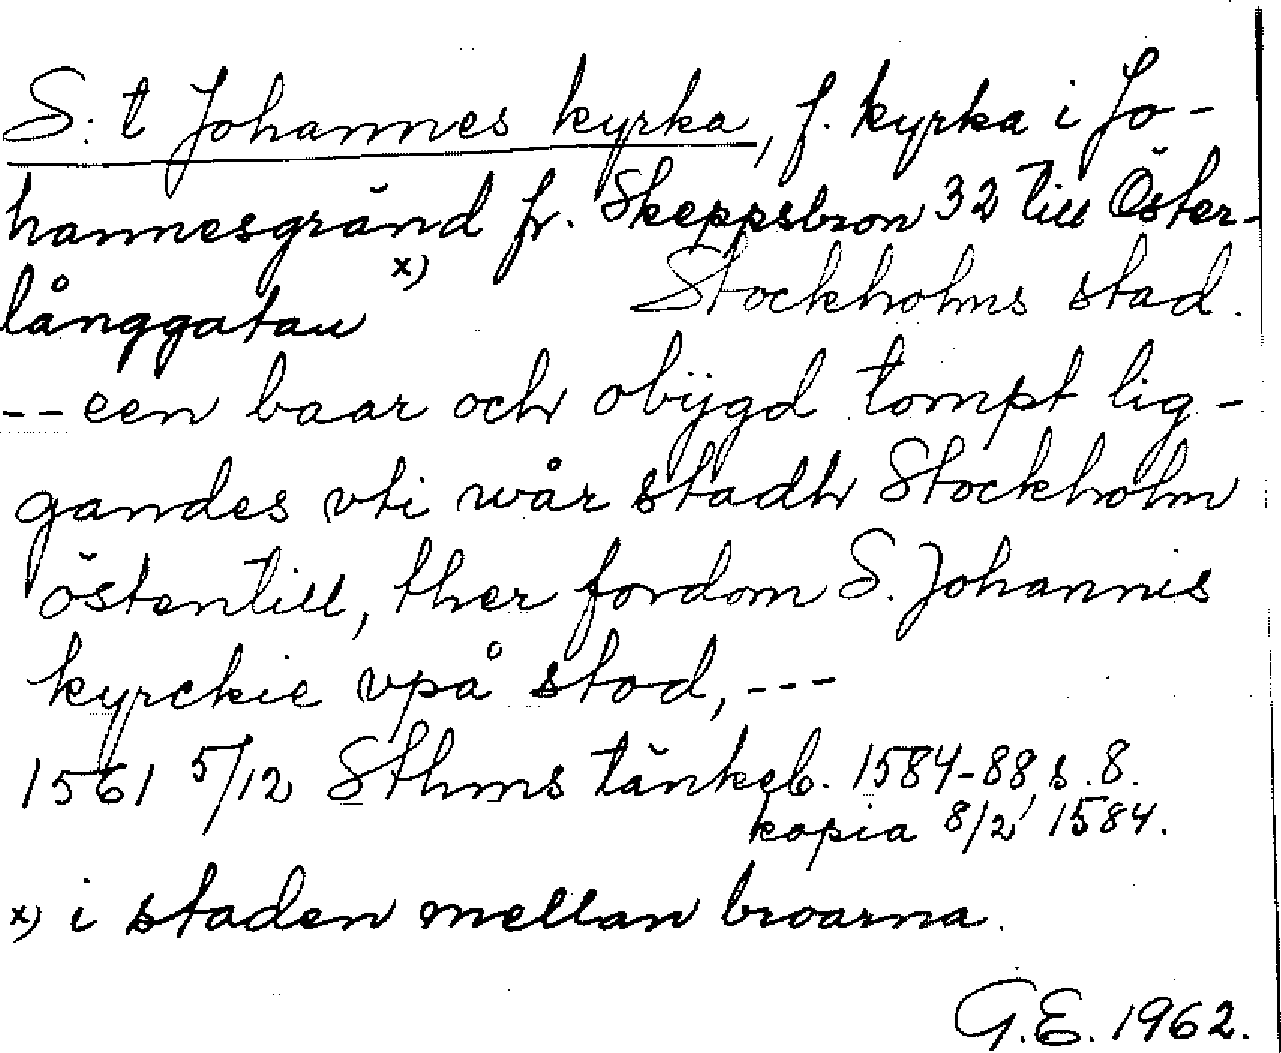 S:t Johannes kyrka, f. kyrka i Jo-
hannesgränd fr. Skeppsbron 32 till Öster-
långgatan x) Stockholms stad.
-- een baar och obijgd tompt lig-
gandes vti wår stadh Stockholm
östentill, ther fordom S. Johannis
kyrckie vpå stod, ---
1561 5/12 Sthms tänkeb. 1584-88 s. 8.
kopia 8/2 1584.
x) i staden mellan broarna.
G.E. 1962.